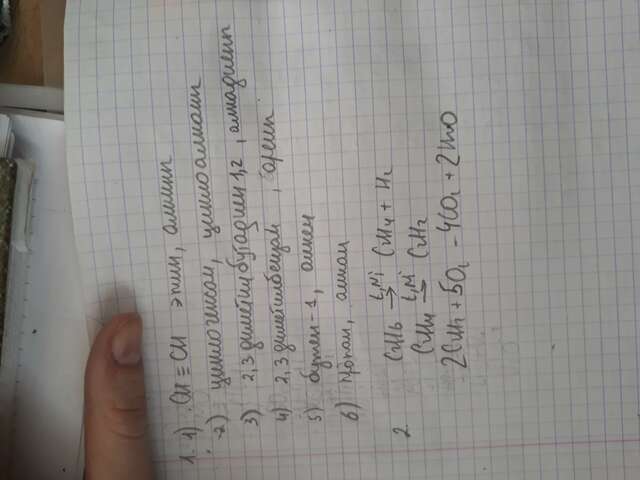 1. 1) CH ≡ CH этин, алкин
2) циклогексан, циклоалкан
3) 2,3 диметилбутадиен 1,2, алкадиен
4) 2,3 диметилбензол, арен
5) бутен-1, алкен
6) пропан, алкан
2. C2H6 t,Ni → C2H4 + H2
C2H4 t,Ni → C2H2
2C2H2 + 5O2 - 4CO2 + 2H2O